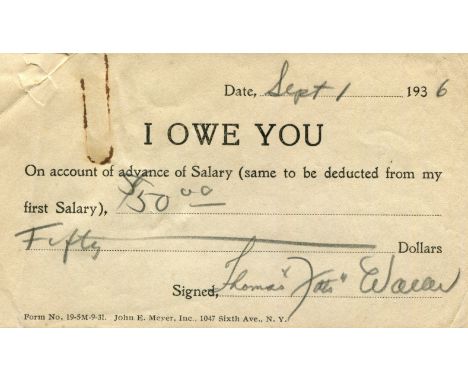 Date, Sept 1 1936
I OWE YOU
On account of advance of Salary (same to be deducted from my
first Salary), $50 00
Fifty Dollars
Signed, Thomas "Fats" Waller
Form No. 19-5M-9-31. John E. Meyer, Inc., 1047 Sixth Ave., N. Y.